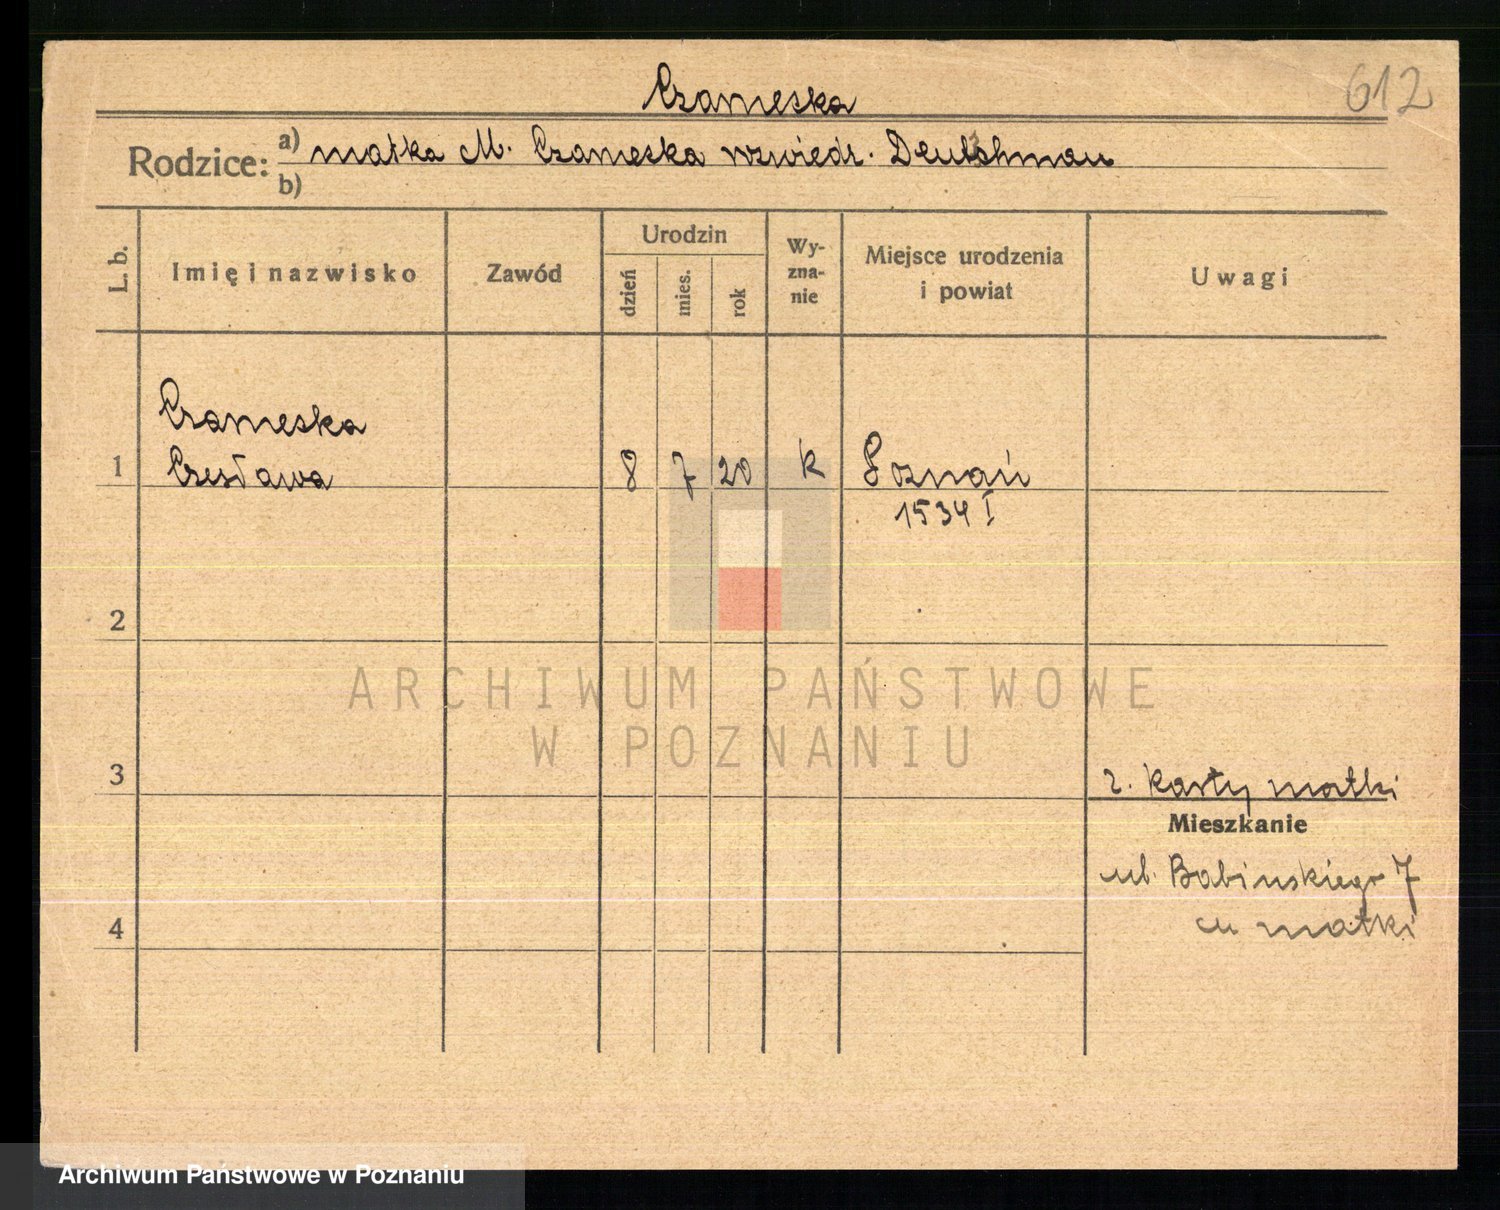 612
Czarneska
Rodzice: a) matka M. Czarneska rozwiedz. Deutschman
b)
L. b.
Imię i nazwisko
Zawód
Urodzin
dzień
mies.
rok
Wy-
zna-
nie
Miejsce urodzenia
i powiat
Uwagi
Czarneska
1 Czesława 8 7 20 k Poznań
1534 I
2
ARCHIWUM PAŃSTWOWE
W POZNANIU
3 z. karty matki
Mieszkanie
ul. Babińskiego 7
4 u matki
Archiwum Państwowe w Poznaniu